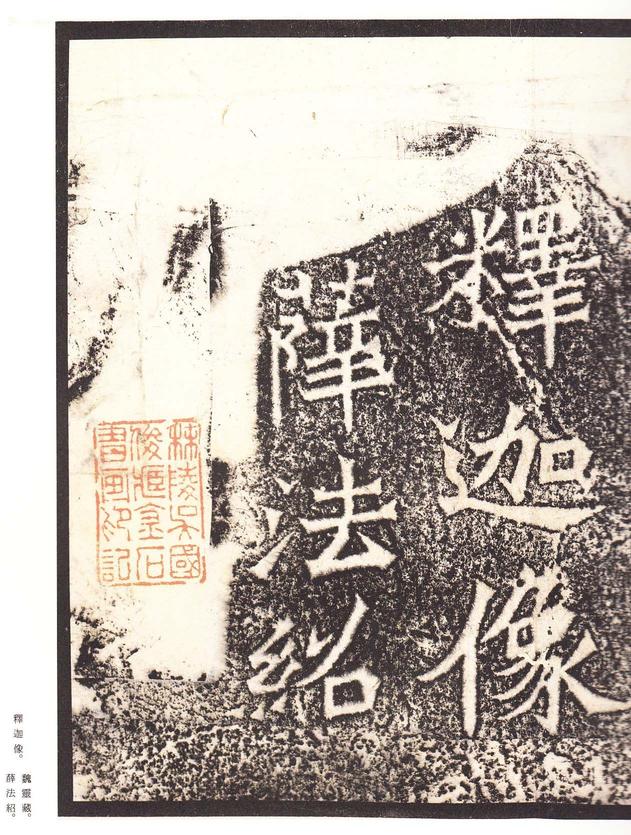 釋迦像
薛法紹
秣陵吳國
俊金石
書畫印記
釋迦像。
魏靈藏。
薛法紹。